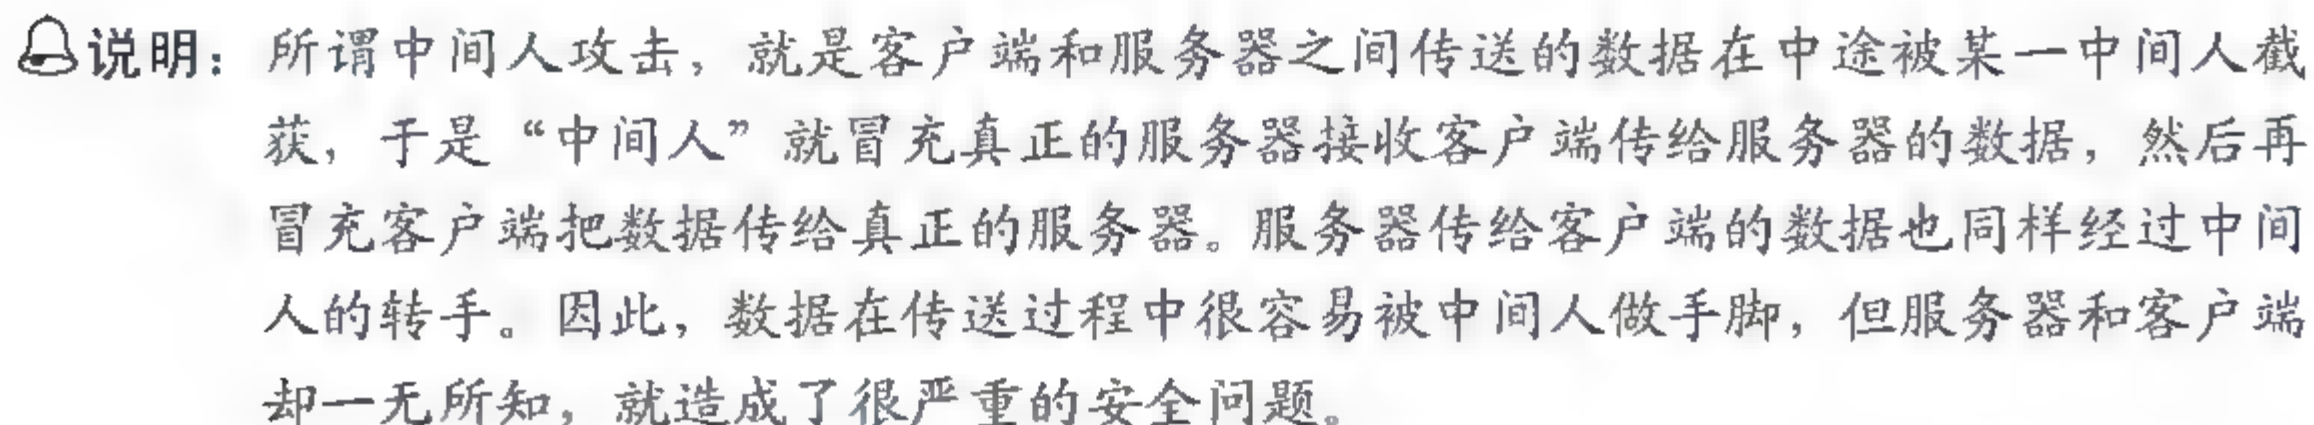 说明：所谓中间人攻击，就是客户端和服务器之间传送的数据在中途被某一中间人截
获，于是“中间人”就冒充真正的服务器接收客户端传给服务器的数据，然后再
冒充客户端把数据传给真正的服务器。服务器传给客户端的数据也同样经过中间
人的转手。因此，数据在传送过程中很容易被中间人做手脚，但服务器和客户端
却一无所知，就造成了很严重的安全问题。